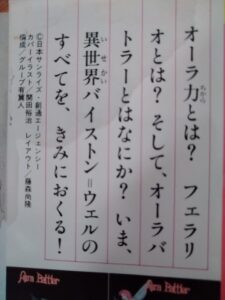 オーラ力とは? フェラリ
オとは? そして、オーラバ
トラーとはなにか? いま、
異世界バイストン=ウェルの
すべてを、きみにおくる!
ちから
いせかい
©日本サンライズ・創通エージェンシー
カバーイラスト/開田裕治 レイアウト/藤森尚隆
構成/グループ有翼人
Aura Battler
Aura Battler